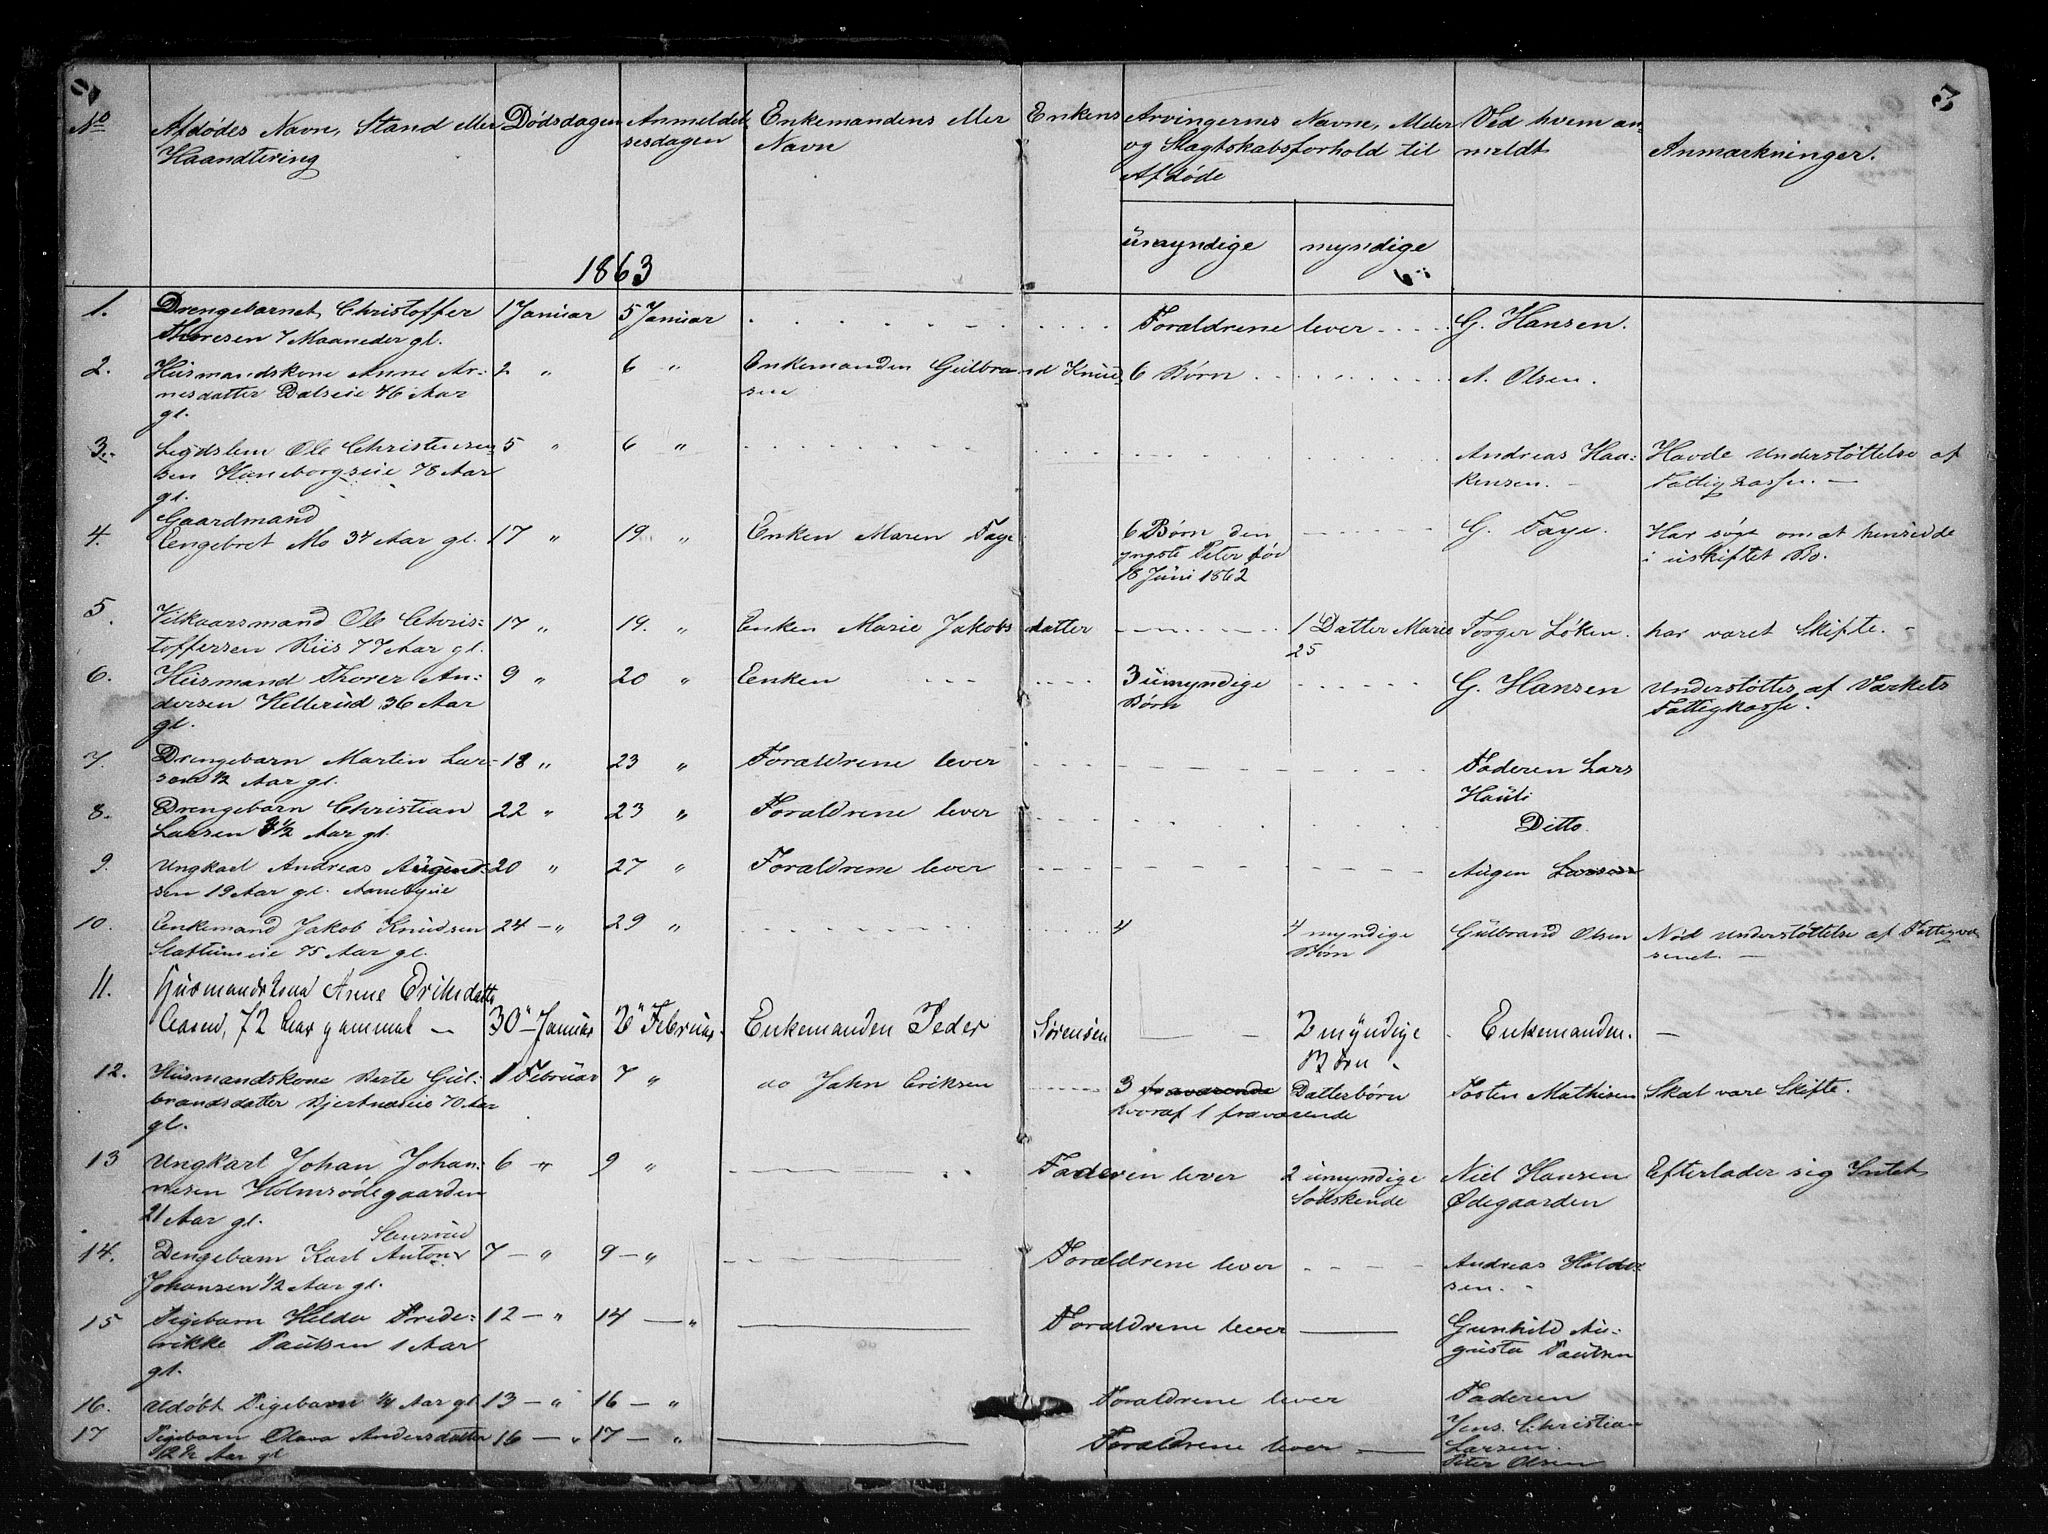 3
No Afdødes Navn, Stand eller Dødsdagen Anmeldel- Enkemandens eller Enkens Arvingernes Navne, Alder Ved hvem an-
Haandtering sesdagen Navn og Slægtskabsforhold til meldt Anmærkninger.
Afdøde
umyndige myndige
1863
1. Drengebarnet Christoffer 1 Januar 5 Januar Forældrene lever G. Hansen.
Thoresen 7 Maaneder gl.
2. Huusmandskone Anne Ar- 2 " 6 " Enkemanden Gulbrand Knud- 6 Børn A. Olsen.
nesdatter Dalseie 46 Aar sen
gl.
3. Lægdslem Ole Christensen 5 " 6 " Andreas Haa- Havde Understøttelse af
sen Haneborgseie 78 Aar kensen. Fattigkassen.
gl.
Gaardmand
4. Engebret Mo 34 Aar gl. 17 " 19. " Enken Maren Faye 6 Børn den G. Faye. Har søgt om at hensidde
yngste Peter født i uskiftet Bo.
18 Juni 1862
5. Vilkaarsmand Ole Chris- 17 " 19. " Enken Marie Jakobsdatter 1 Datter Maries Torger Løken. har været Skifte.
toffersen Riis 77 Aar gl. 25
6. Huusmand Thorer An- 9 " 20 " Enken 3 umyndige G. Hansen Understøttes af Værkets
dersen Hellerud 36 Aar Børn Fattigkasse.
gl.
7. Drengebarn Martin Lar- 18 " 23 " Forældrene lever Faderen Lars
sen 1/2 Aar gl.
8. Drengebarn Christian 22 " 23 " Forældrene lever Ditto.
Larsen 3 1/2 Aar gl.
9. Ungkarl Andreas Augend- 20 " 27 " Forældrene lever Augen Larsen
sen 19 Aar gl.
10. Enkemand Jakob Knudsen 24 - " 29 " 4 4 myndige Gulbrand Olsen Nød Understøttelse af Fattigvæ-
Slattumeie 75 Aar gl. Børn senet.
11. Husmandskona Anne Eriksdatter
Aasen, 72 Aar gammel - 30" Januar 2" Februar Enkemanden Peder Sørensen - 2 myndige Enkemanden. -
Børn
12. Huusmandskone Berte Gul- 1 Februar 7 " do Jahn Eriksen 3 fraværende Datterbørn Tosten Mathisen Skal være Skifte.
brandsdatter Bjertnæseie 70 Aar hvoraf 1 fraværende
gl.
13 Ungkarl Johan Johan- 6 " 9 " Faderen lever 2 umyndige Niel Hansen Efterlader sig Intet
nesen Holmsødegaarden Sødskende Ødegaarden
21 Aar gl.
Stensrud
14. Dengebarn Karl Anton 7 - " 9 - " Forældrene lever Andreas Haldor-
Johansen 1/2 Aar gl. sen.
15 Pigebarn Helda Frede- 12 - " 14 - " Forældrene lever Gunhild Au-
rikke Paulsen 1 Aar gusta Paulsen
gl.
16. Udøbt Pigebarn 1/4 Aar gl 13 - " 16 - " Forældrene lever Faderen
Jens Christian
17 Pigebarn Olava Andersdatter 16 - " 17 - " Forældrene lever Larsen.
2 1/2 Aar gl Peter Olsen